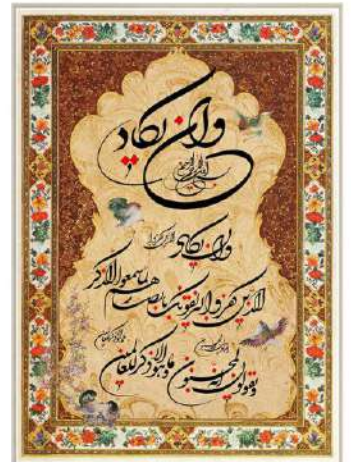 وان یکاد
بسم الله الرحمن الرحیم
وان یکاد
الذین کفروا لیزلقونک بابصارهم لما سمعوا الذکر
ویقولون انه لمجنون وما هو الا ذکر للعالمین